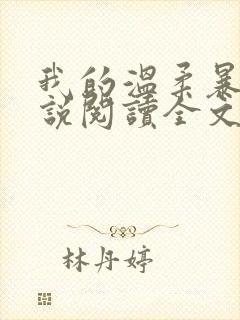 我的溫柔暴
說閱讀全文
林丹婷